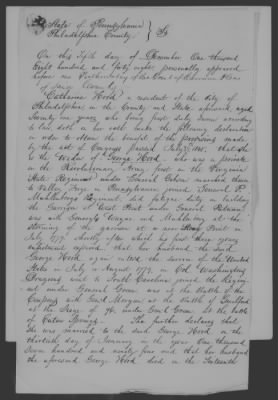 State of Pennsylvania
Philadelphia County } SS
On this fifth day of December One thousand
Eight hundred and forty eight personally appeared
before me Prothonotary of the Court of Common Pleas
of said County
Catharine Hood a resident of the City of
Philadelphia in the County and State aforesaid aged
Seventy one years who being first duly Sworn according
to law doth on her oath make the following declaration
in order to obtain the benefit of the provisions made
by the act of Congress passed July 1848, that she
is the Widow of George Hood, who was a private
in the Revolutionary Army first in the Virginia
State Regiment under Colonel marched thence
to Valley Forge in Pennsylvania joined General P.
Muhlenberg Regiment, did fatigue duty building
the Garrison of West Point under General
was with General Wayne and Muhlenberg at the
Storming of the garrison at Stony Point in
July 1779 shortly after which his first three years
enlistment expired, that her husband the said
George Hood again entered the service of the United
States in July or August 1779, in Col Washington
Dragoons went to South Carolina joined the Regi-
ment under General Green was at the Battle of the
Cowpens with Genl Morgan at the Battle of Guilford
at the Siege of 96 under Genl Green at the battle
of Eutaw Springs. She further declares that
She was married to the said George Hood on the
thirtieth day of January in the year One thousand
Seven hundred and ninety four and that her husband
the aforesaid George Hood died in the Sixteenth